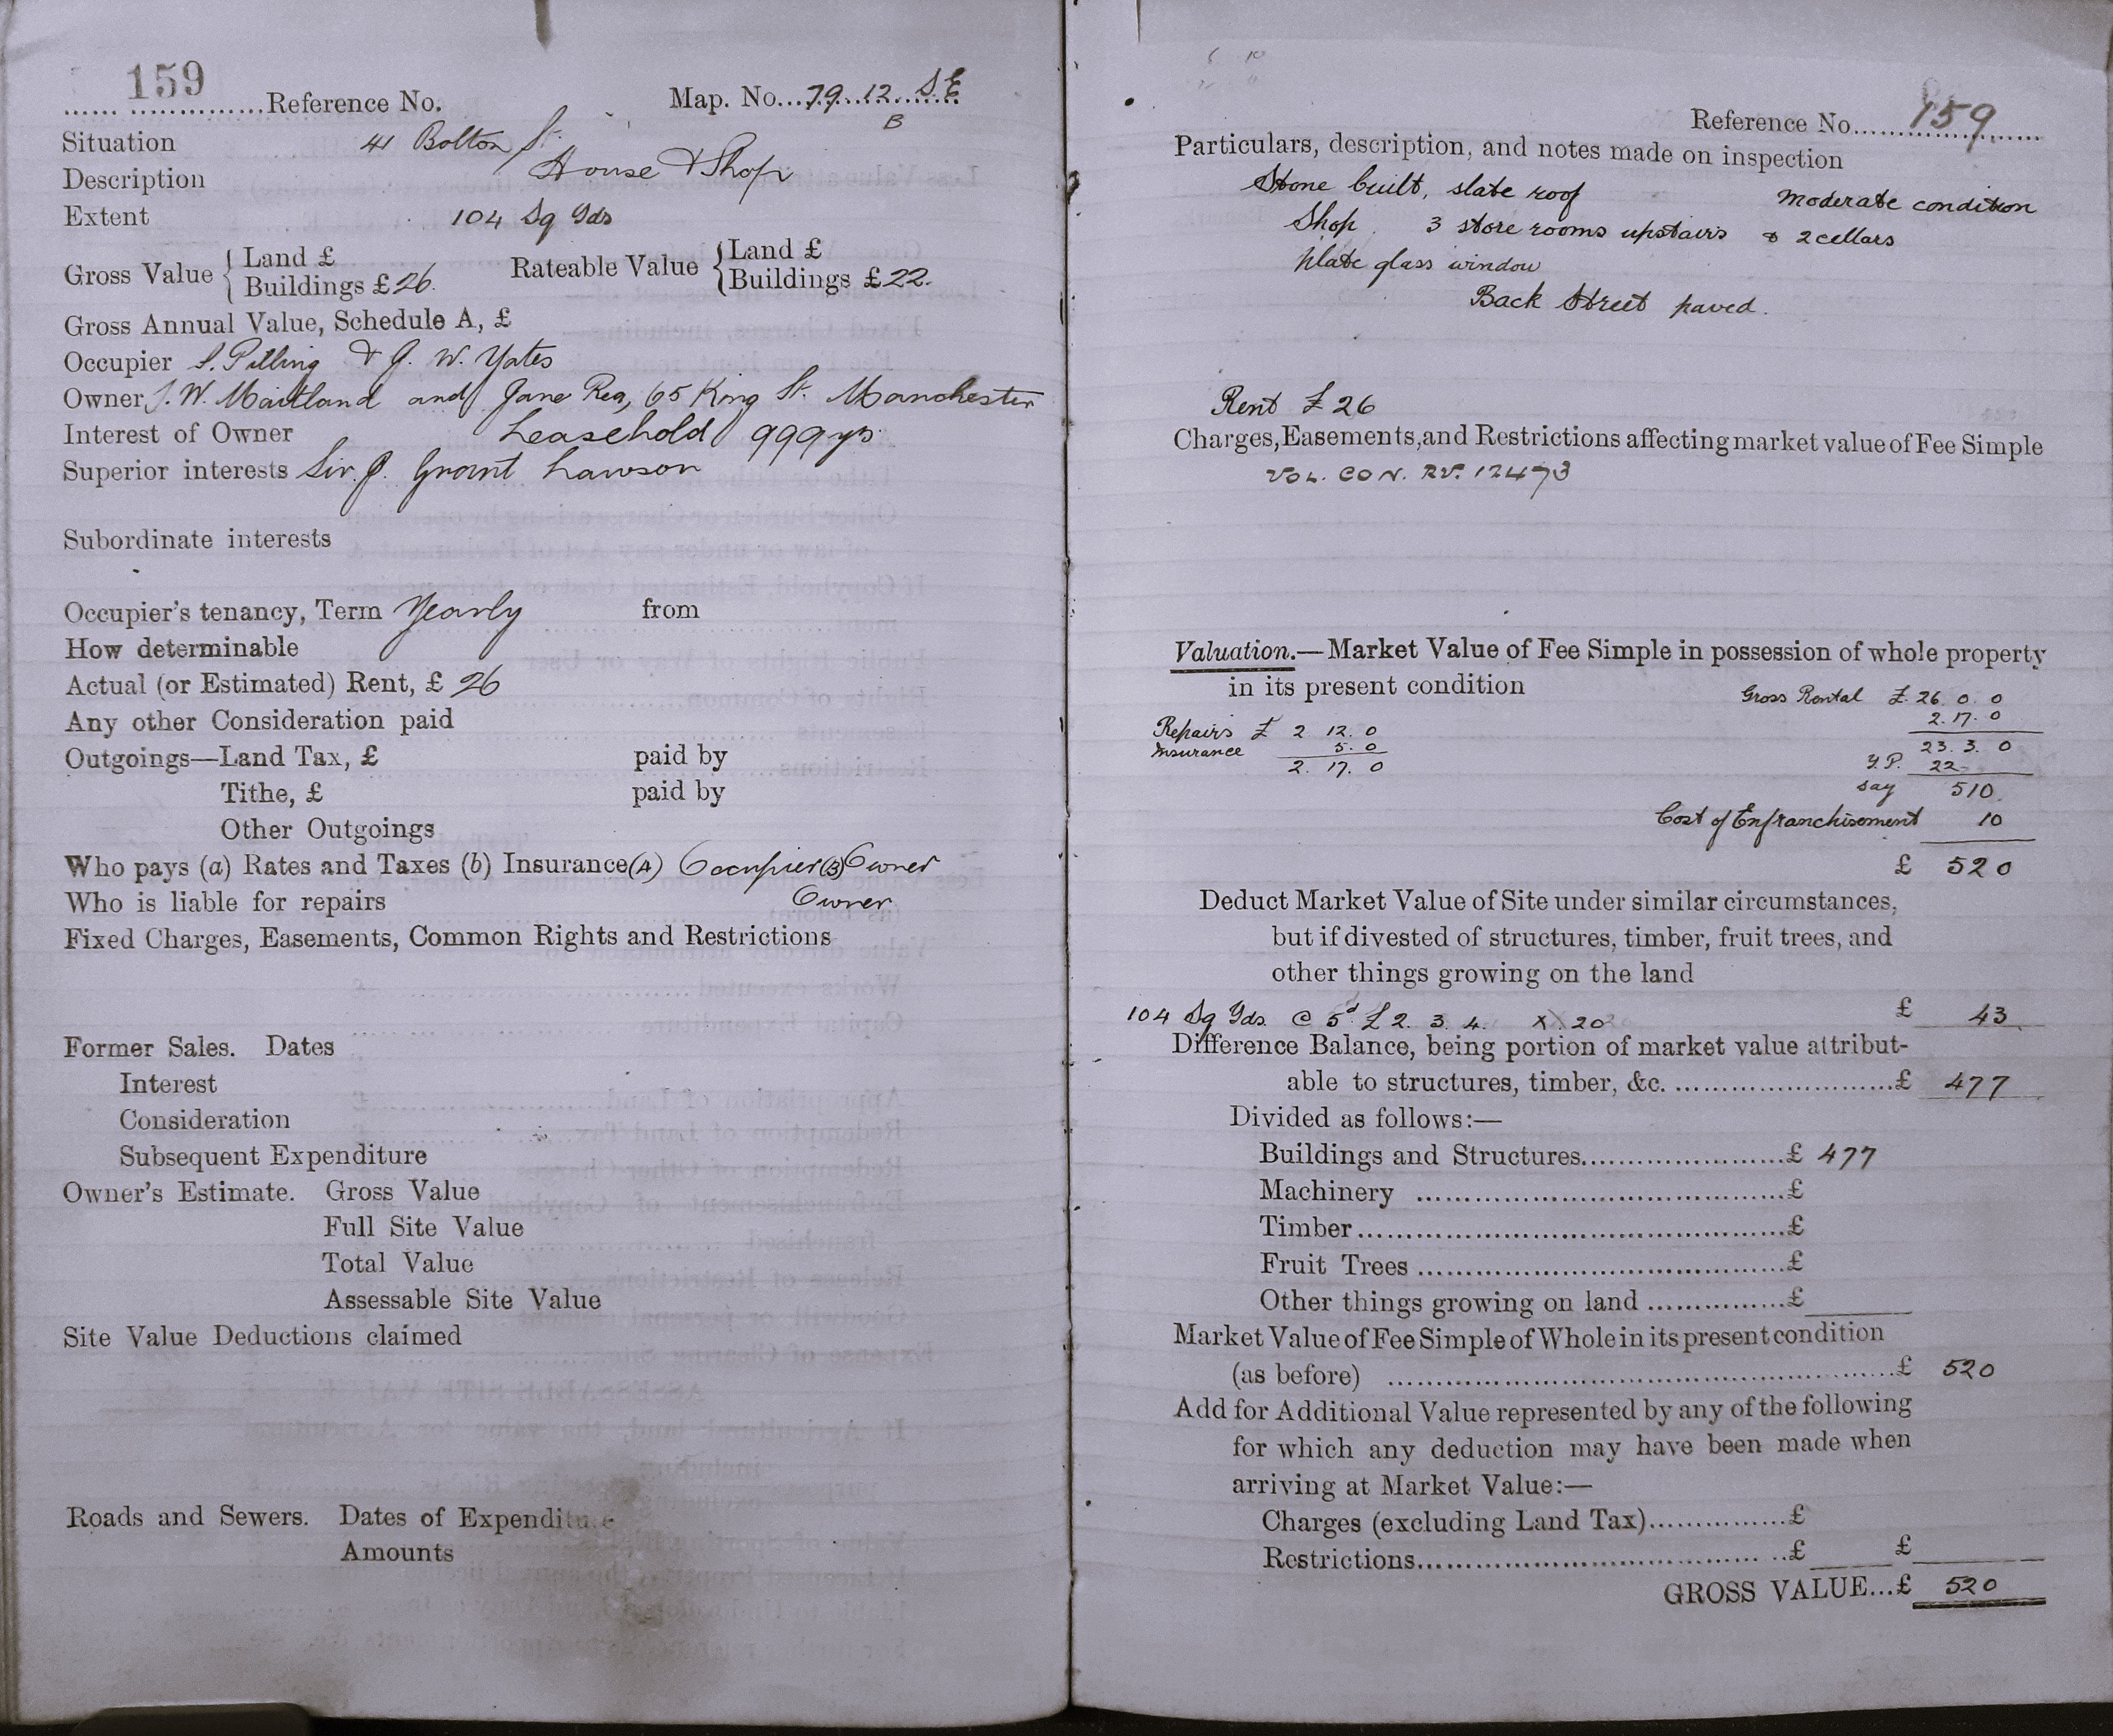 159 Reference No. Map. No. 79. 12. S.E
B
Situation 41 Bolton St.
Description House & Shop
Extent 104 Sq Yds
Gross Value { Land £ Rateable Value { Land £
Buildings £ 26. Buildings £ 22.
Gross Annual Value, Schedule A, £
Occupier S. Pilling & J. W. Yates
Owner J. W. Maitland and Jane Rea, 65 King St. Manchester
Interest of Owner Leasehold 999 yrs.
Superior interests Sir J. Grant Lawson
Subordinate interests
Occupier's tenancy, Term Yearly from
How determinable
Actual (or Estimated) Rent, £ 26
Any other Consideration paid
Outgoings—Land Tax, £ paid by
Tithe, £ paid by
Other Outgoings
Who pays (a) Rates and Taxes (b) Insurance (A) Occupier (B) Owner
Who is liable for repairs Owner
Fixed Charges, Easements, Common Rights and Restrictions
Former Sales. Dates
Interest
Consideration
Subsequent Expenditure
Owner's Estimate. Gross Value
Full Site Value
Total Value
Assessable Site Value
Site Value Deductions claimed
Roads and Sewers. Dates of Expenditure
Amounts
Reference No. 159
Particulars, description, and notes made on inspection
Stone built, slate roof Moderate condition
Shop. 3 store rooms upstairs & 2 cellars
Plate glass window
Back Street paved.
Rent £ 26
Charges, Easements, and Restrictions affecting market value of Fee Simple
VOL. CON. RV. 12473
Valuation.—Market Value of Fee Simple in possession of whole property
in its present condition
Gross Rental £ 26. 0. 0
Repairs £ 2 12. 0 2. 17. 0
Insurance 5. 0 23. 3. 0
2. 17. 0 Y.P. 22
say 510
Cost of Enfranchisement 10
£ 520
Deduct Market Value of Site under similar circumstances,
but if divested of structures, timber, fruit trees, and
other things growing on the land
104 Sq Yds. @ 5d £ 2. 3. 4. x 20 £ 43
Difference Balance, being portion of market value attribut-
able to structures, timber, &c. £ 477
Divided as follows:—
Buildings and Structures £ 477
Machinery £
Timber £
Fruit Trees £
Other things growing on land £
Market Value of Fee Simple of Whole in its present condition
(as before) £ 520
Add for Additional Value represented by any of the following
for which any deduction may have been made when
arriving at Market Value:—
Charges (excluding Land Tax) £
Restrictions £ £
GROSS VALUE...£ 520